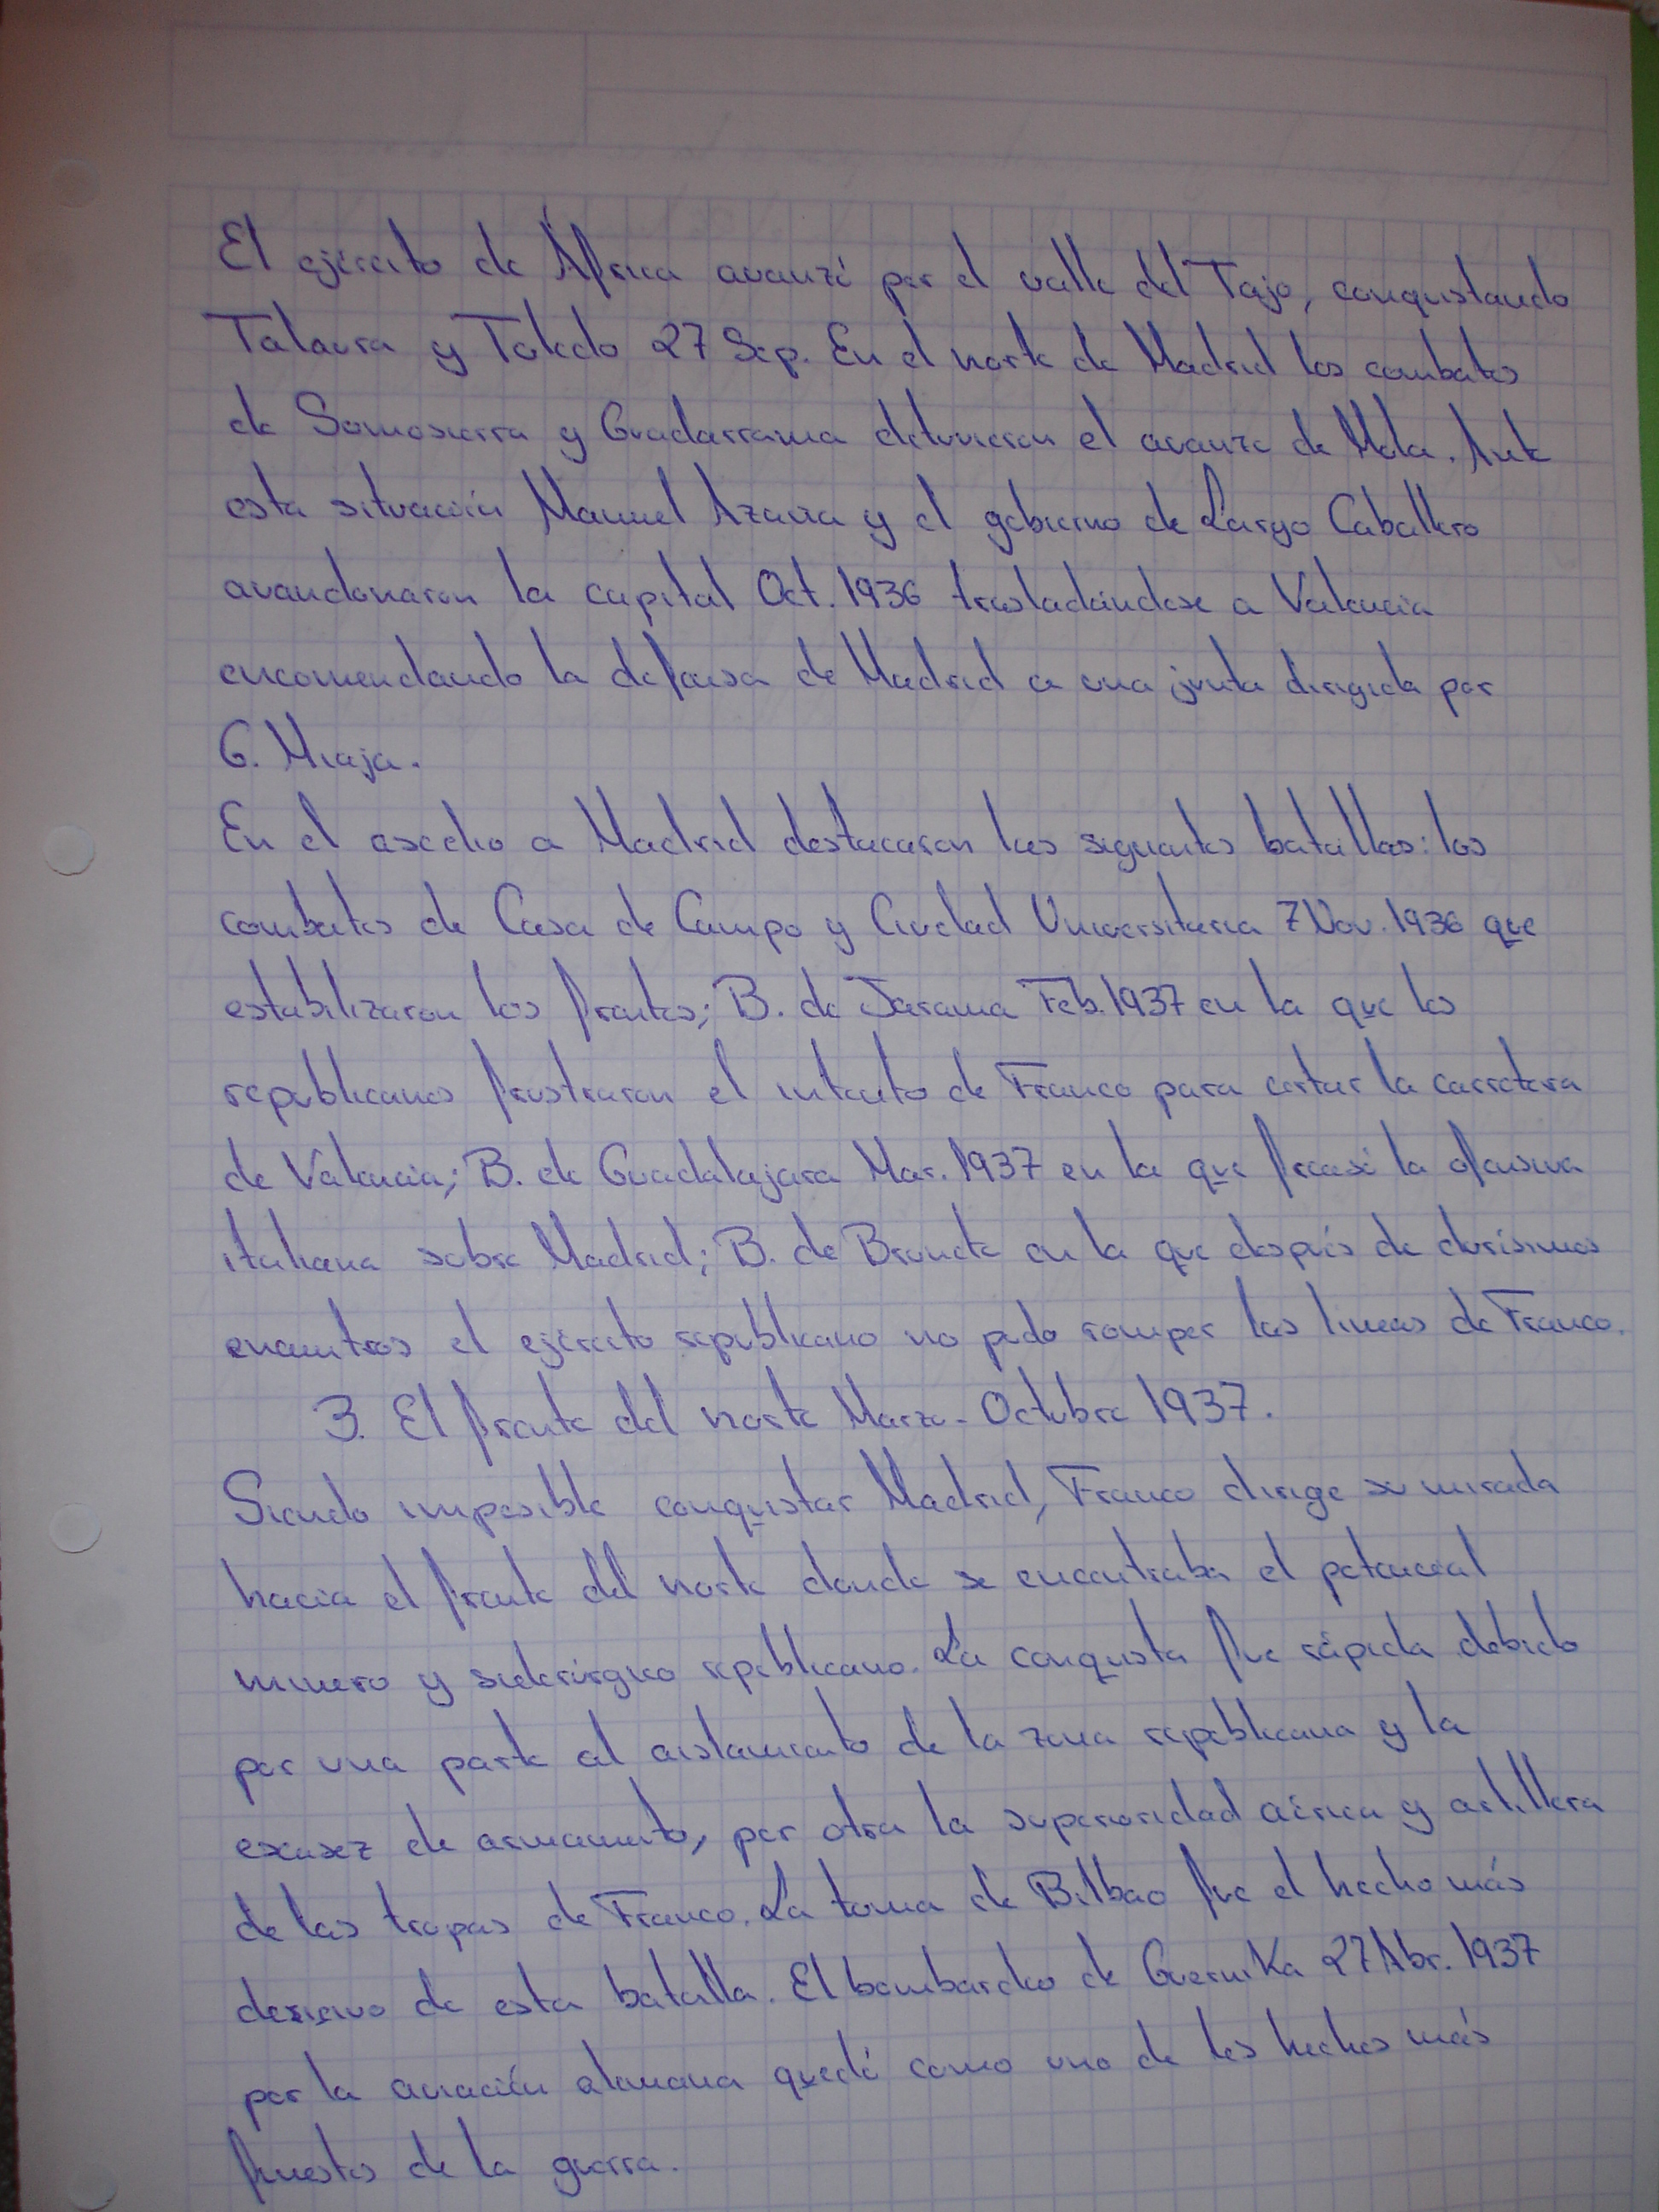 El ejército de África avanzó por el valle del Tajo, conquistando
Talavera y Toledo 27 Sep. En el norte de Madrid los combates
de Somosierra y Guadarrama detuvieron el avance de Mola. Ante
esta situación Manuel Azaña y el gobierno de Largo Caballero
avandonaron la capital Oct. 1936 trasladándose a Valencia
encomendando la defensa de Madrid a una junta dirigida por
G. Miaja.
En el asedio a Madrid destacaron las siguientes batallas: los
combates de Casa de Campo y Ciudad Universitaria 7 Nov. 1936 que
estabilizaron los frentes; B. de Jarama Feb. 1937 en la que los
republicanos frustraron el intento de Franco para cortar la carretera
de Valencia; B. de Guadalajara Mar. 1937 en la que fracasó la ofensiva
italiana sobre Madrid; B. de Brunete en la que después de durísimos
encuentros el ejército republicano no pudo romper las lineas de Franco.
3. El frente del norte Marzo - Octubre 1937.
Siendo imposible conquistar Madrid, Franco dirige su mirada
hacia el frente del norte donde se encontraba el potencial
minero y siderúrgico republicano. La conquista fue rápida debido
por una parte al aislamiento de la zona republicana y la
escasez de armamento, por otra la superioridad aérea y artillera
de las tropas de Franco. La toma de Bilbao fue el hecho más
decisivo de esta batalla. El bombardeo de Guernika 27 Abr. 1937
por la aviación alemana quedó como uno de los hechos más
funestos de la guerra.